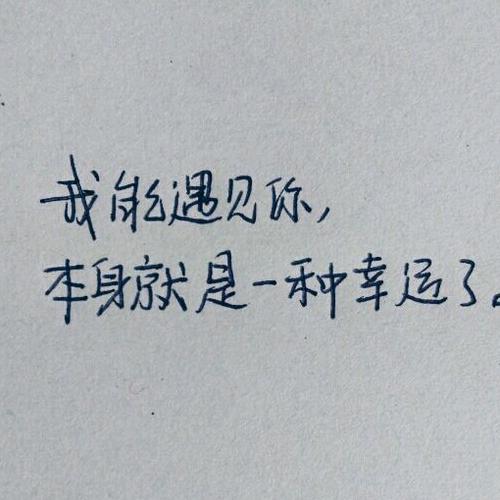 我能遇见你,
本身就是一种幸运了。